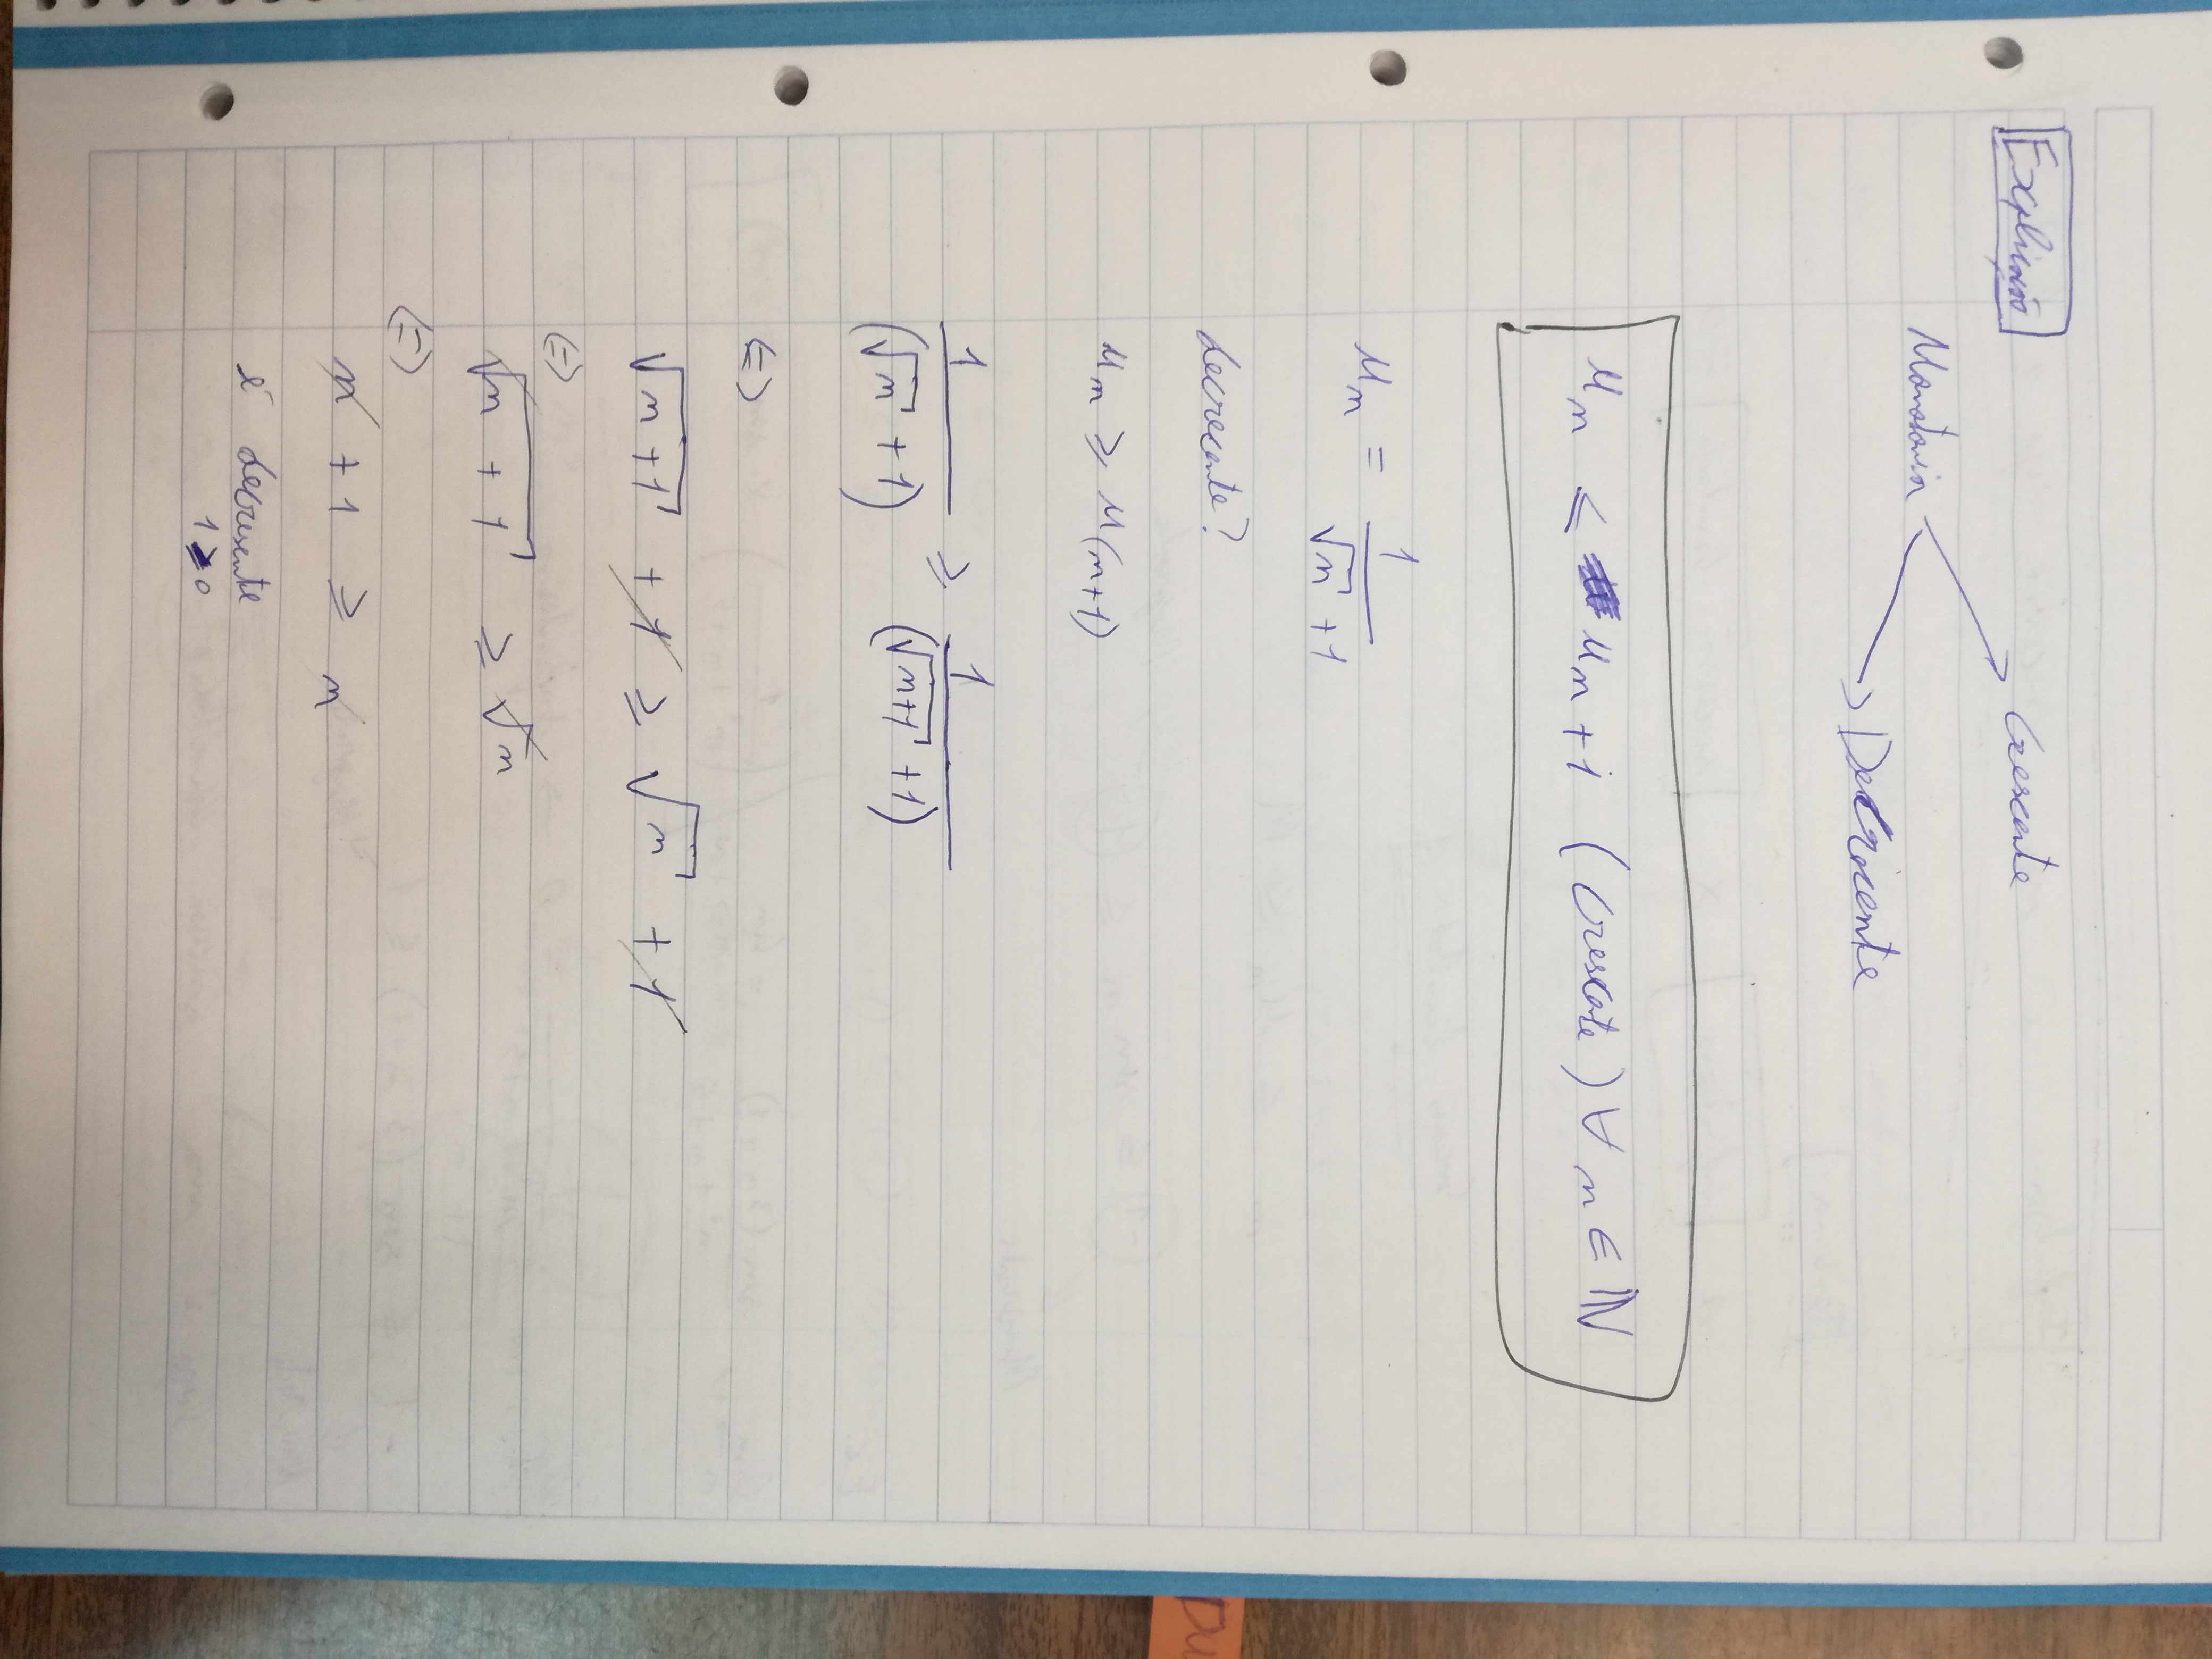 Explicação
Monotonia → Crescente
→ Decrescente
Un ≤ Un+1 (Crescente) ∀ n ∈ ℕ
Un = 1/(√n + 1)
decrecente?
Un ≥ U(n+1)
1/(√n + 1) ≥ 1/(√n+1 + 1)
(=)
√n+1 + 1 ≥ √n + 1
(=)
√n + 1 ≥ √n
(=)
n + 1 ≥ n
é decrescente
1 ≥ 0